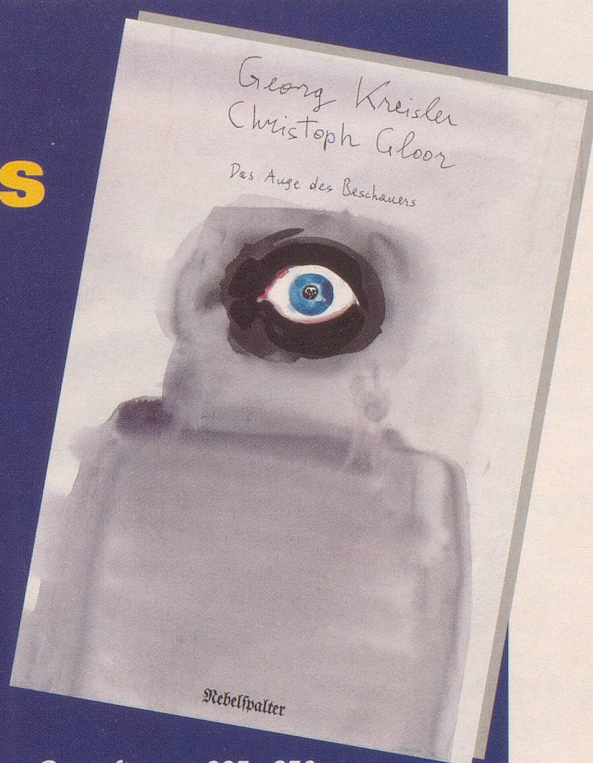 s
Georg Kreisler
Christoph Gloor
Das Auge des Beschauers
Nebelſpalter